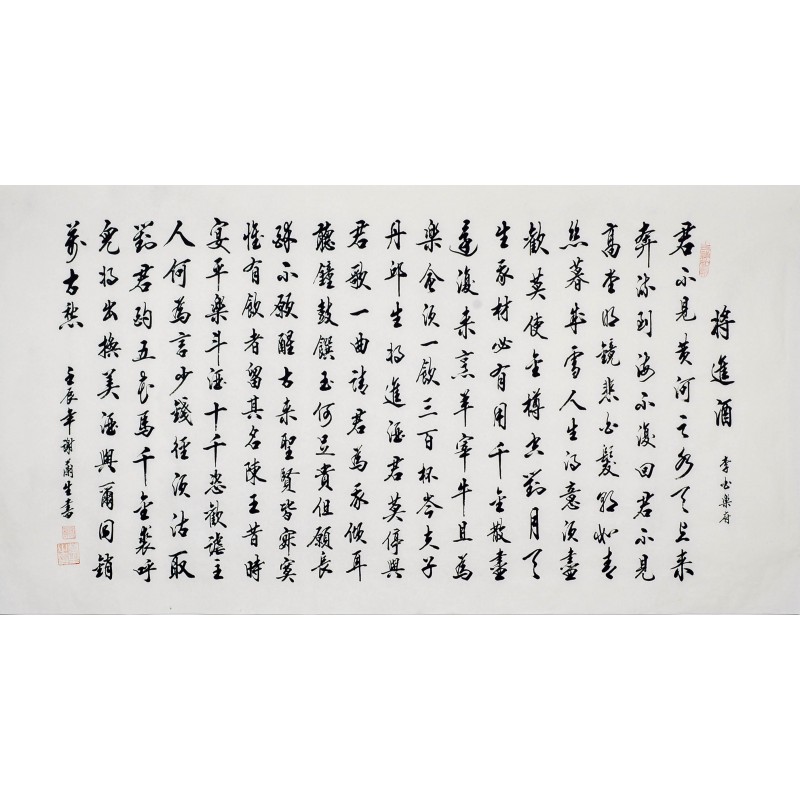 將進酒 李白樂府
君不見黃河之水天上来
奔流到海不復回君不見
高堂明鏡悲白髮朝如青
丝暮成雪人生得意須盡
歡莫使金樽空對月天
生我材必有用千金散盡
還復来烹羊宰牛且為
樂會須一飲三百杯岑夫子
丹邱生將進酒君莫停與
君歌一曲請君為我傾耳
聽鐘鼓饌玉何足貴但願長
醉不願醒古来聖賢皆寂寞
惟有飲者留其名陳王昔時
宴平樂斗酒十千恣歡謔主
人何為言少錢徑須沽取
對君酌五花馬千金裘呼
兒將出換美酒與爾同銷
萬古愁
壬辰年謝生書